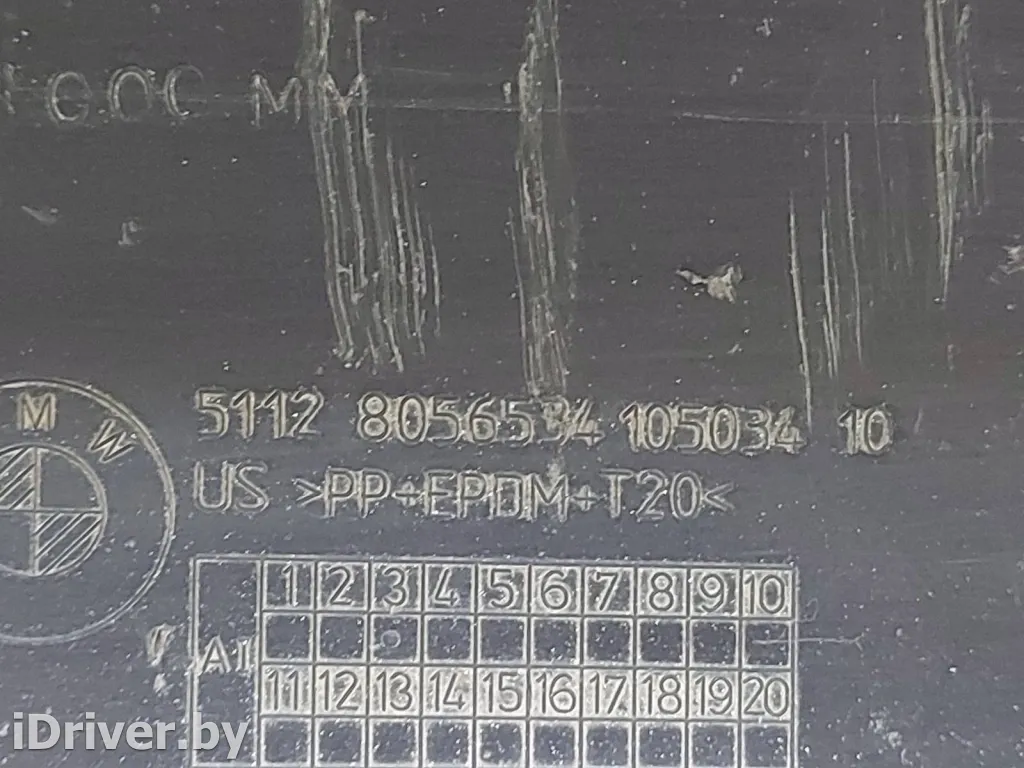 MM
M W
5112 8056534 105034 10
US >PP+EPDM+T20<
1 2 3 4 5 6 7 8 9 10
11 12 13 14 15 16 17 18 19 20
iDriver.by